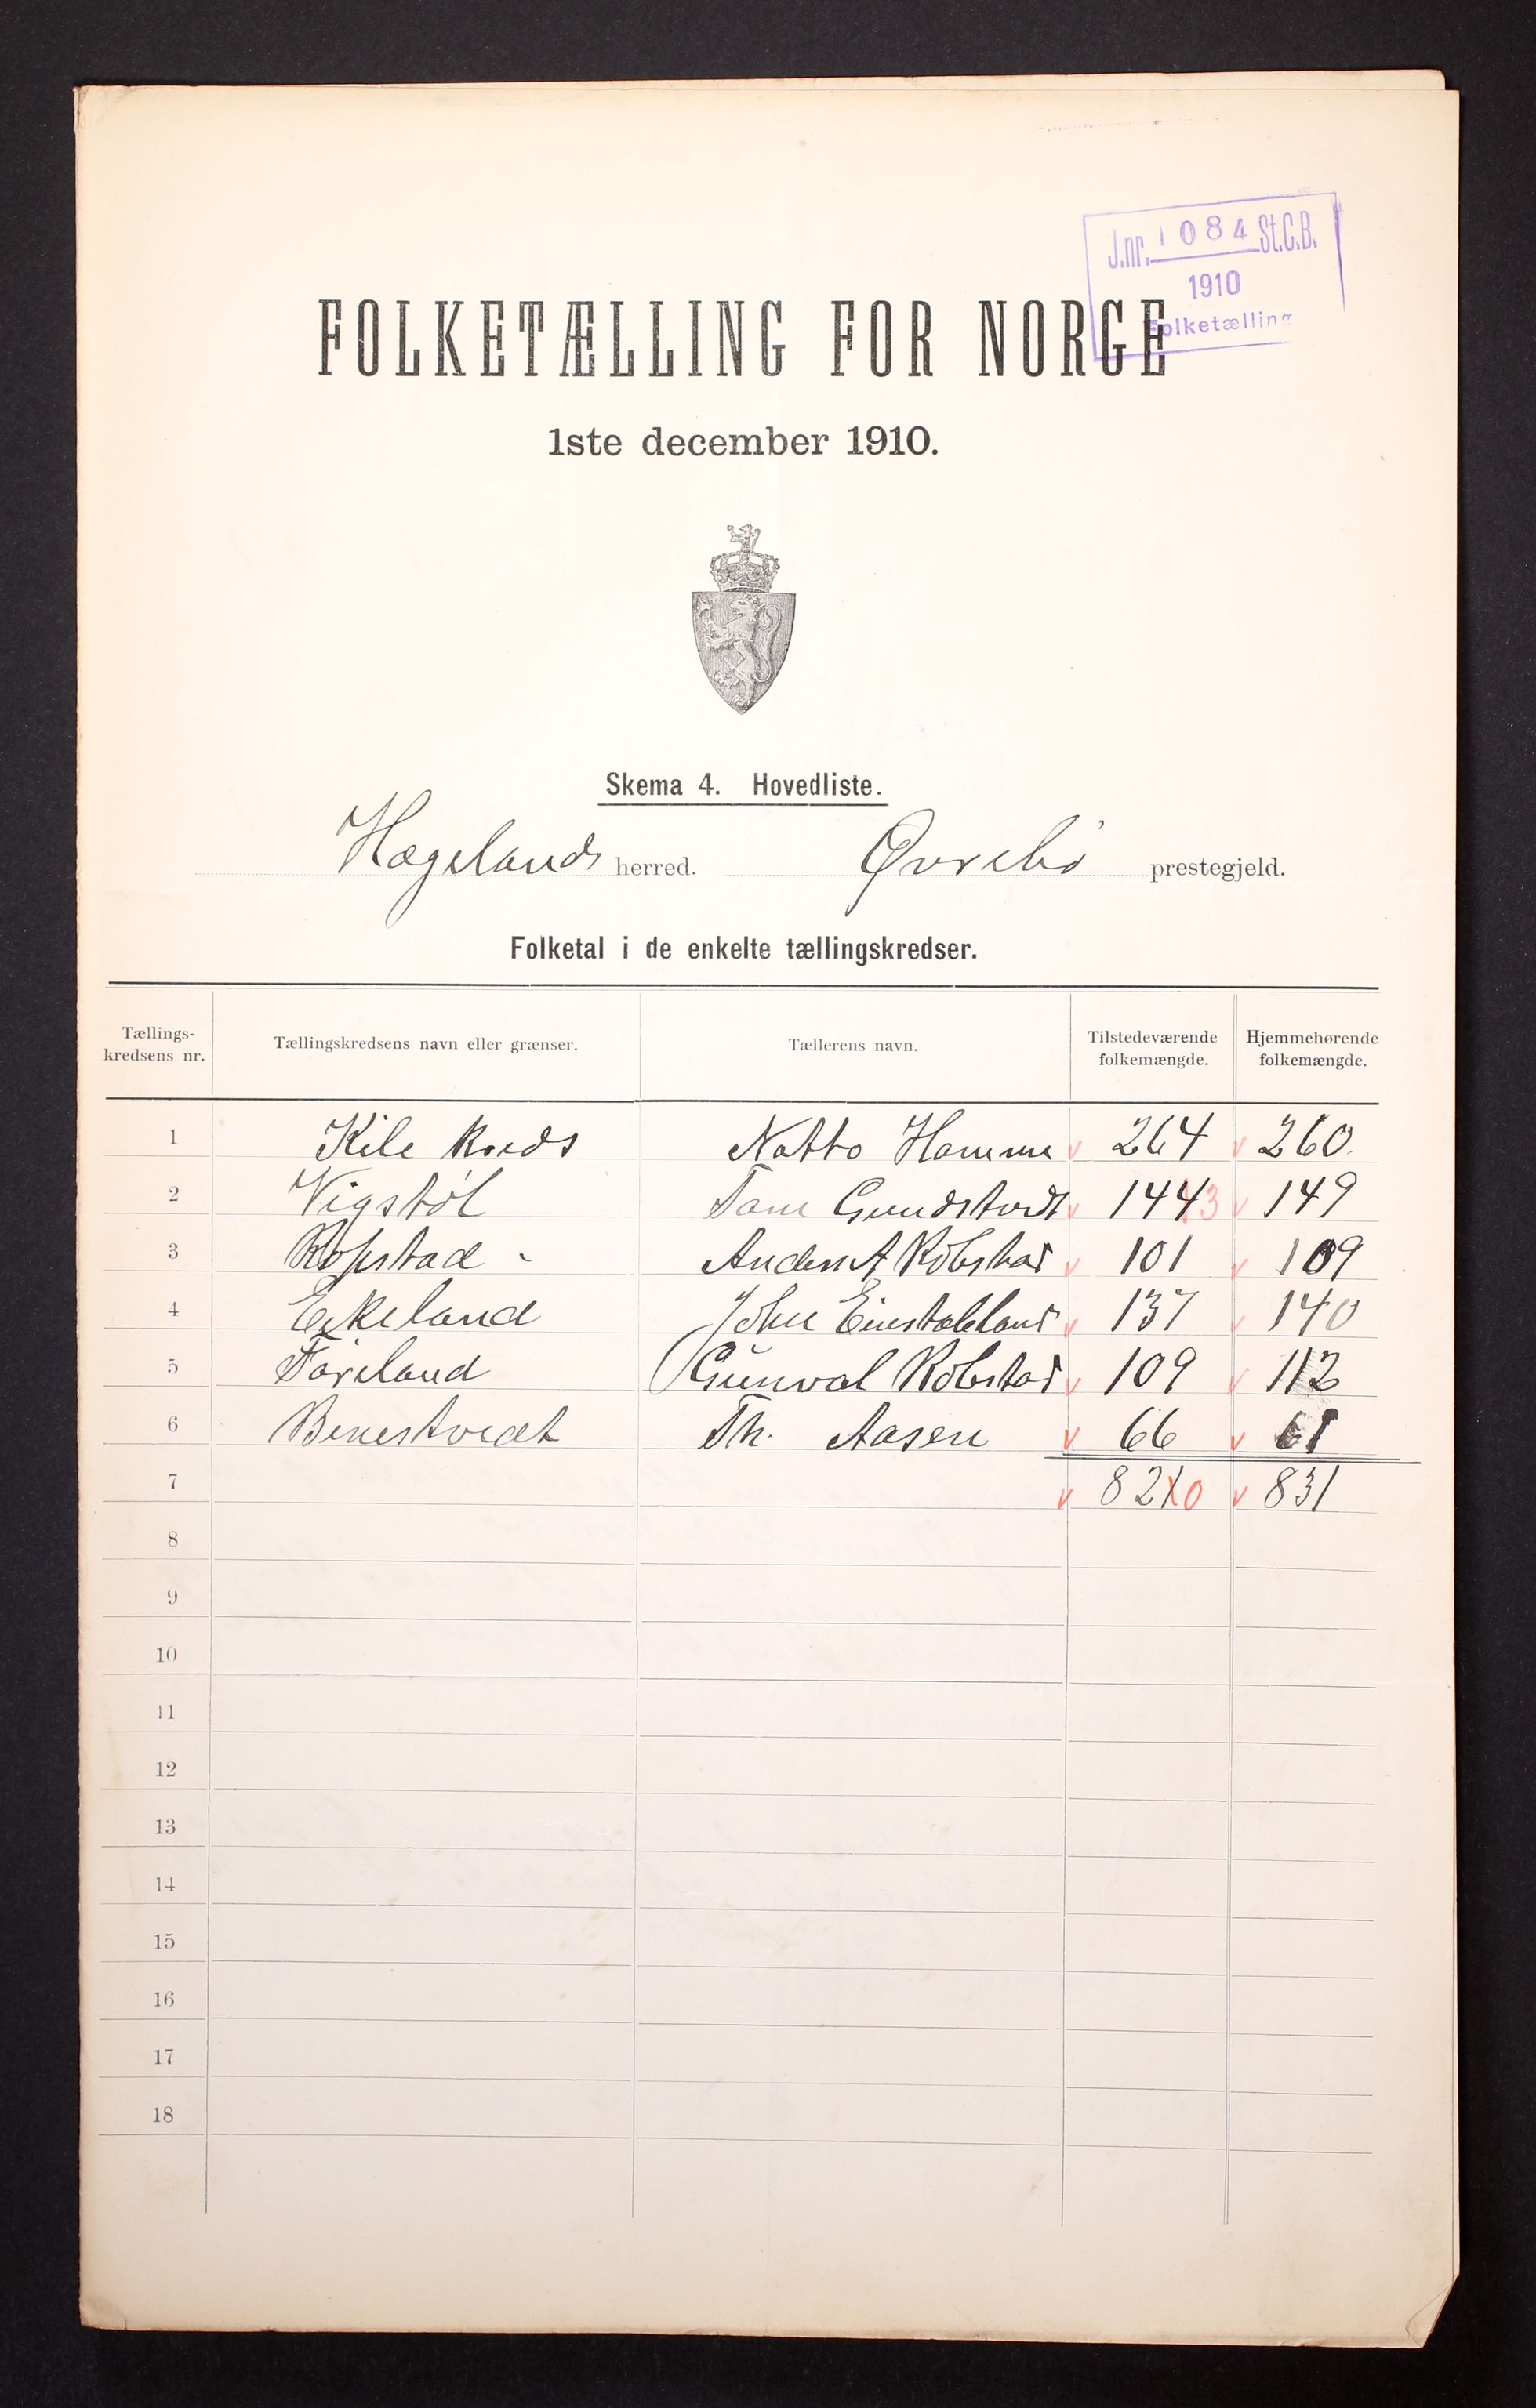 J.nr. 1084 St.C.B.
1910
Folketælling
FOLKETÆLLING FOR NORGE
1ste december 1910.
Skema 4. Hovedliste.
Hægelands herred. Øvrebö prestegjeld.
Folketal i de enkelte tællingskredser.
Tællings-kredsens nr. Tællingskredsens navn eller grænser. Tællerens navn. Tilstedeværende folkemængde. Hjemmehørende folkemængde.
1 Kile Kreds Natto Homme v 264 v 260.
2 Vigstöl Tom Gundstvedt v 1443 v 149
3 Robstad - Anders A Robstad v 101 v 109
4 Eikeland John Einstabland v 137 v 140
5 Föreland Gunval Robstad v 109 v 112
6 Benestvedt Th. Aasen v 66 v 61
7 v 8210 v 831
8
9
10
11
12
13
14
15
16
17
18